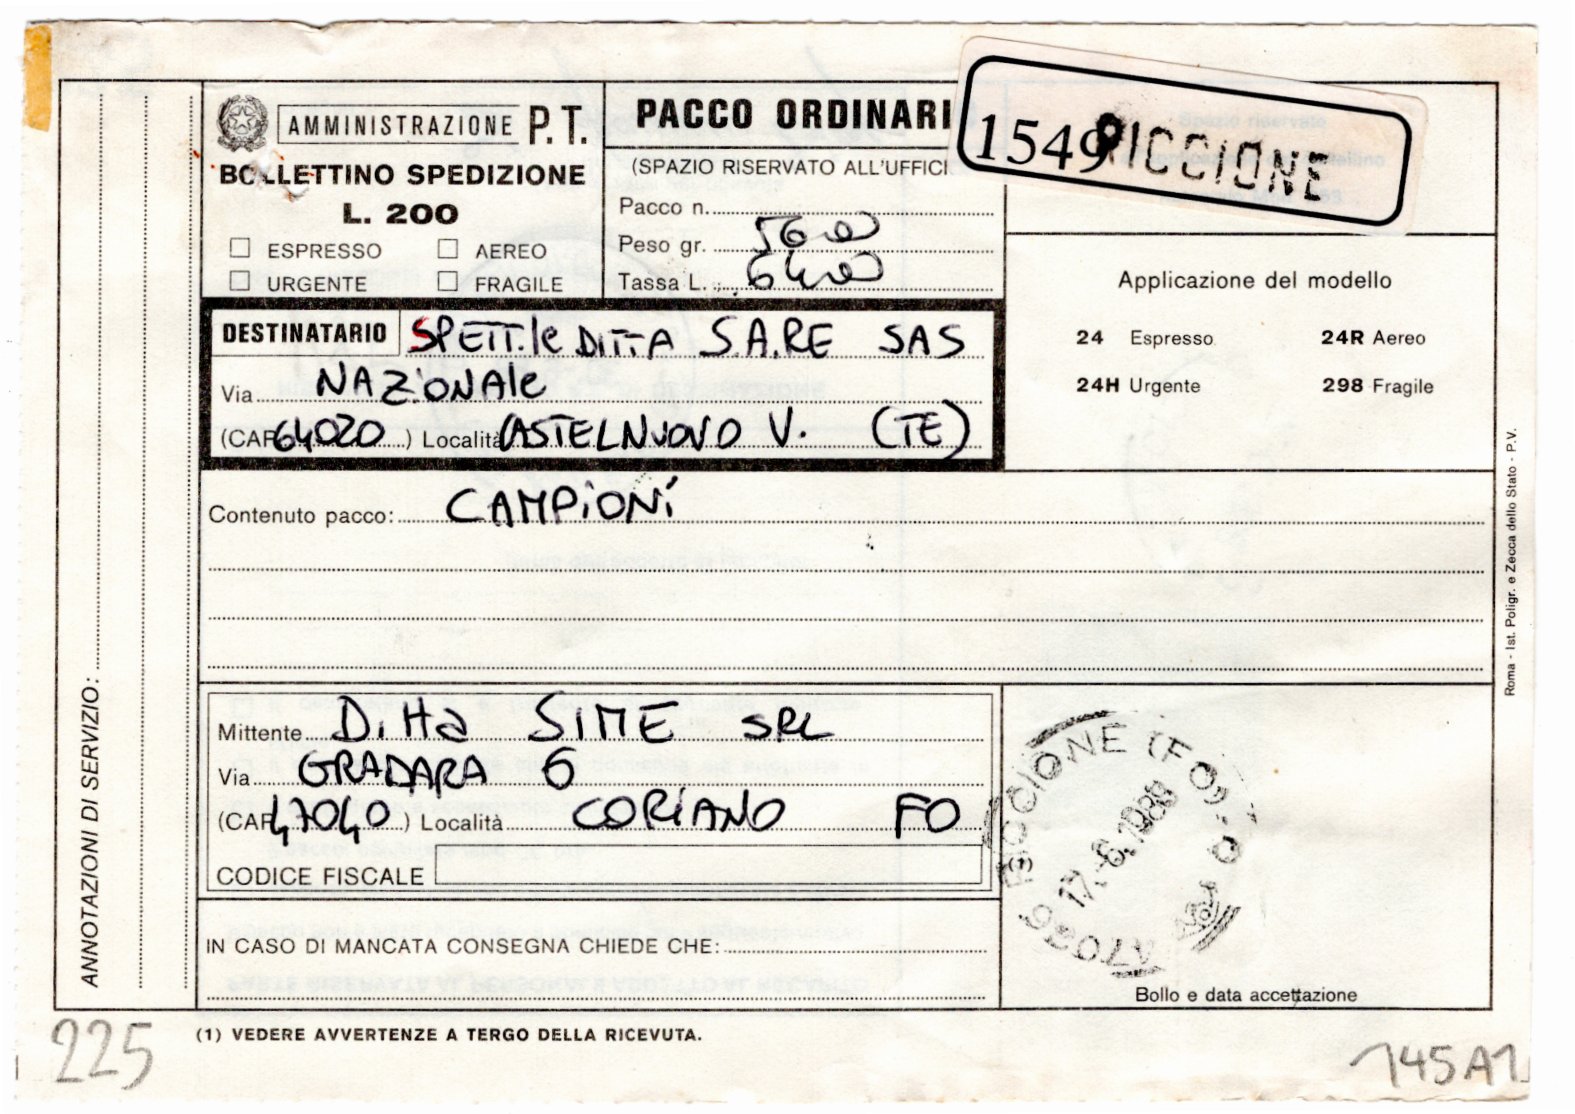 AMMINISTRAZIONE P.T.
BOLLETTINO SPEDIZIONE
L. 200
ESPRESSO
AEREO
URGENTE
FRAGILE
PACCO ORDINARI
(SPAZIO RISERVATO ALL'UFFICI
Pacco n.
Peso gr. 5600
Tassa L. 6400
1549 RICCIONE
Applicazione del modello
24 Espresso
24R Aereo
24H Urgente
298 Fragile
DESTINATARIO SPETT.le DITTA S.A.RE SAS
Via NAZIONAle
(CAP 64020) Località CASTELNUOVO V. (TE)
Contenuto pacco: CAMPIONI
Mittente Ditta SIME SRL
Via GRADARA 6
(CAP 47040) Località CORIANO FO
CODICE FISCALE
IN CASO DI MANCATA CONSEGNA CHIEDE CHE:
47036 RICCIONE (FO)
17.-6.1989
Bollo e data accettazione
ANNOTAZIONI DI SERVIZIO:
Roma - Ist. Poligr. e Zecca dello Stato - P.V.
(1) VEDERE AVVERTENZE A TERGO DELLA RICEVUTA.
225
145A1